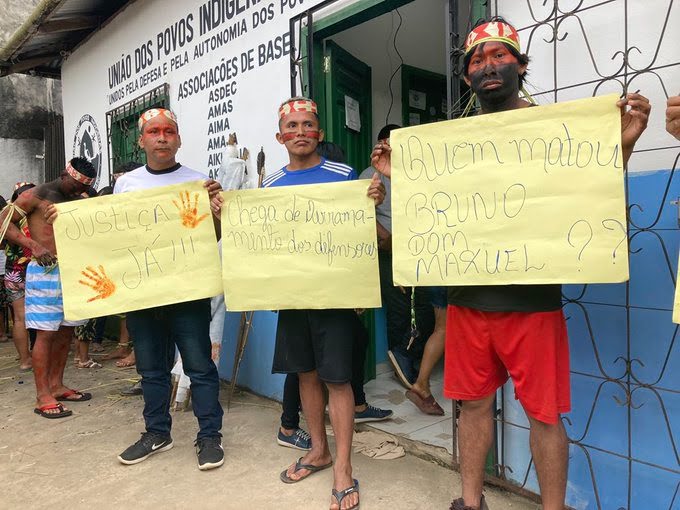 UNIÃO DOS POVOS INDÍGEN
UNIDOS PELA DEFESA E PELA AUTONOMIA DOS POV
ASSOCIAÇÕES DE BASE
ASDEC
AMAS
AIMA
AMA
AKI
JUSTIÇA
JÁ!!!
Chega de
mento dos defensores
Quem matou
BRUNO
DOM
MAXUEL ??